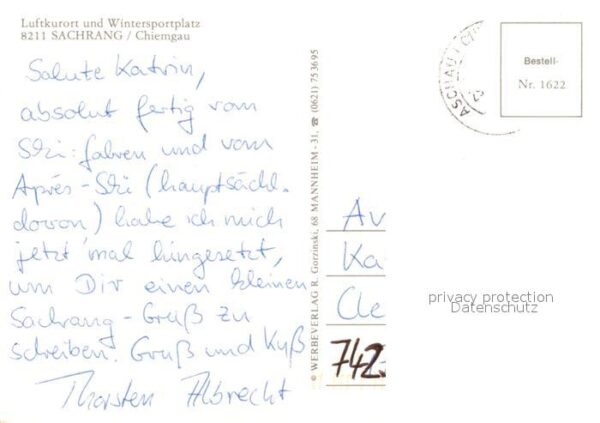 Luftkurort und Wintersportplatz
8211 SACHRANG / Chiemgau
Salute Katrin,
absolut fertig vom
Ski-fahren und vom
Après-Ski (hauptsächl.
davon) habe ich mich
jetzt 'mal hingesetzt,
um Dir einen kleinen
Sachrang-Gruß zu
schreiben. Gruß und Kuß
Thorsten Albrecht
© WERBEVERLAG R. Gorzinski, 68 MANNHEIM-31, ☎ (0621) 753695
ASCHAU I
Bestell-
Nr. 1622
Av
Ka
Cle
742
privacy protection
Datenschutz